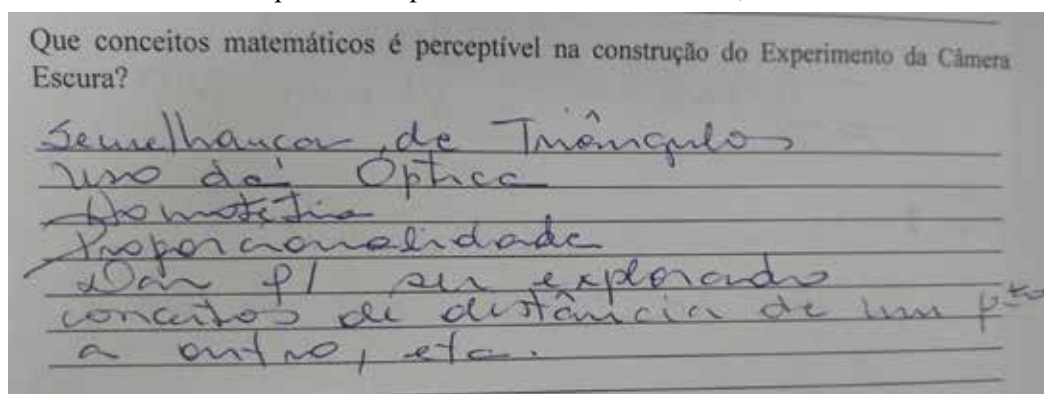 Que conceitos matemáticos é perceptível na construção do Experimento da Câmera
Escura?
Semelhança de Triângulos
uso da Óptica
Homotetia
Proporcionalidade
Dar p/ ser explorado
conceitos de distância de um pto
a outro, etc.